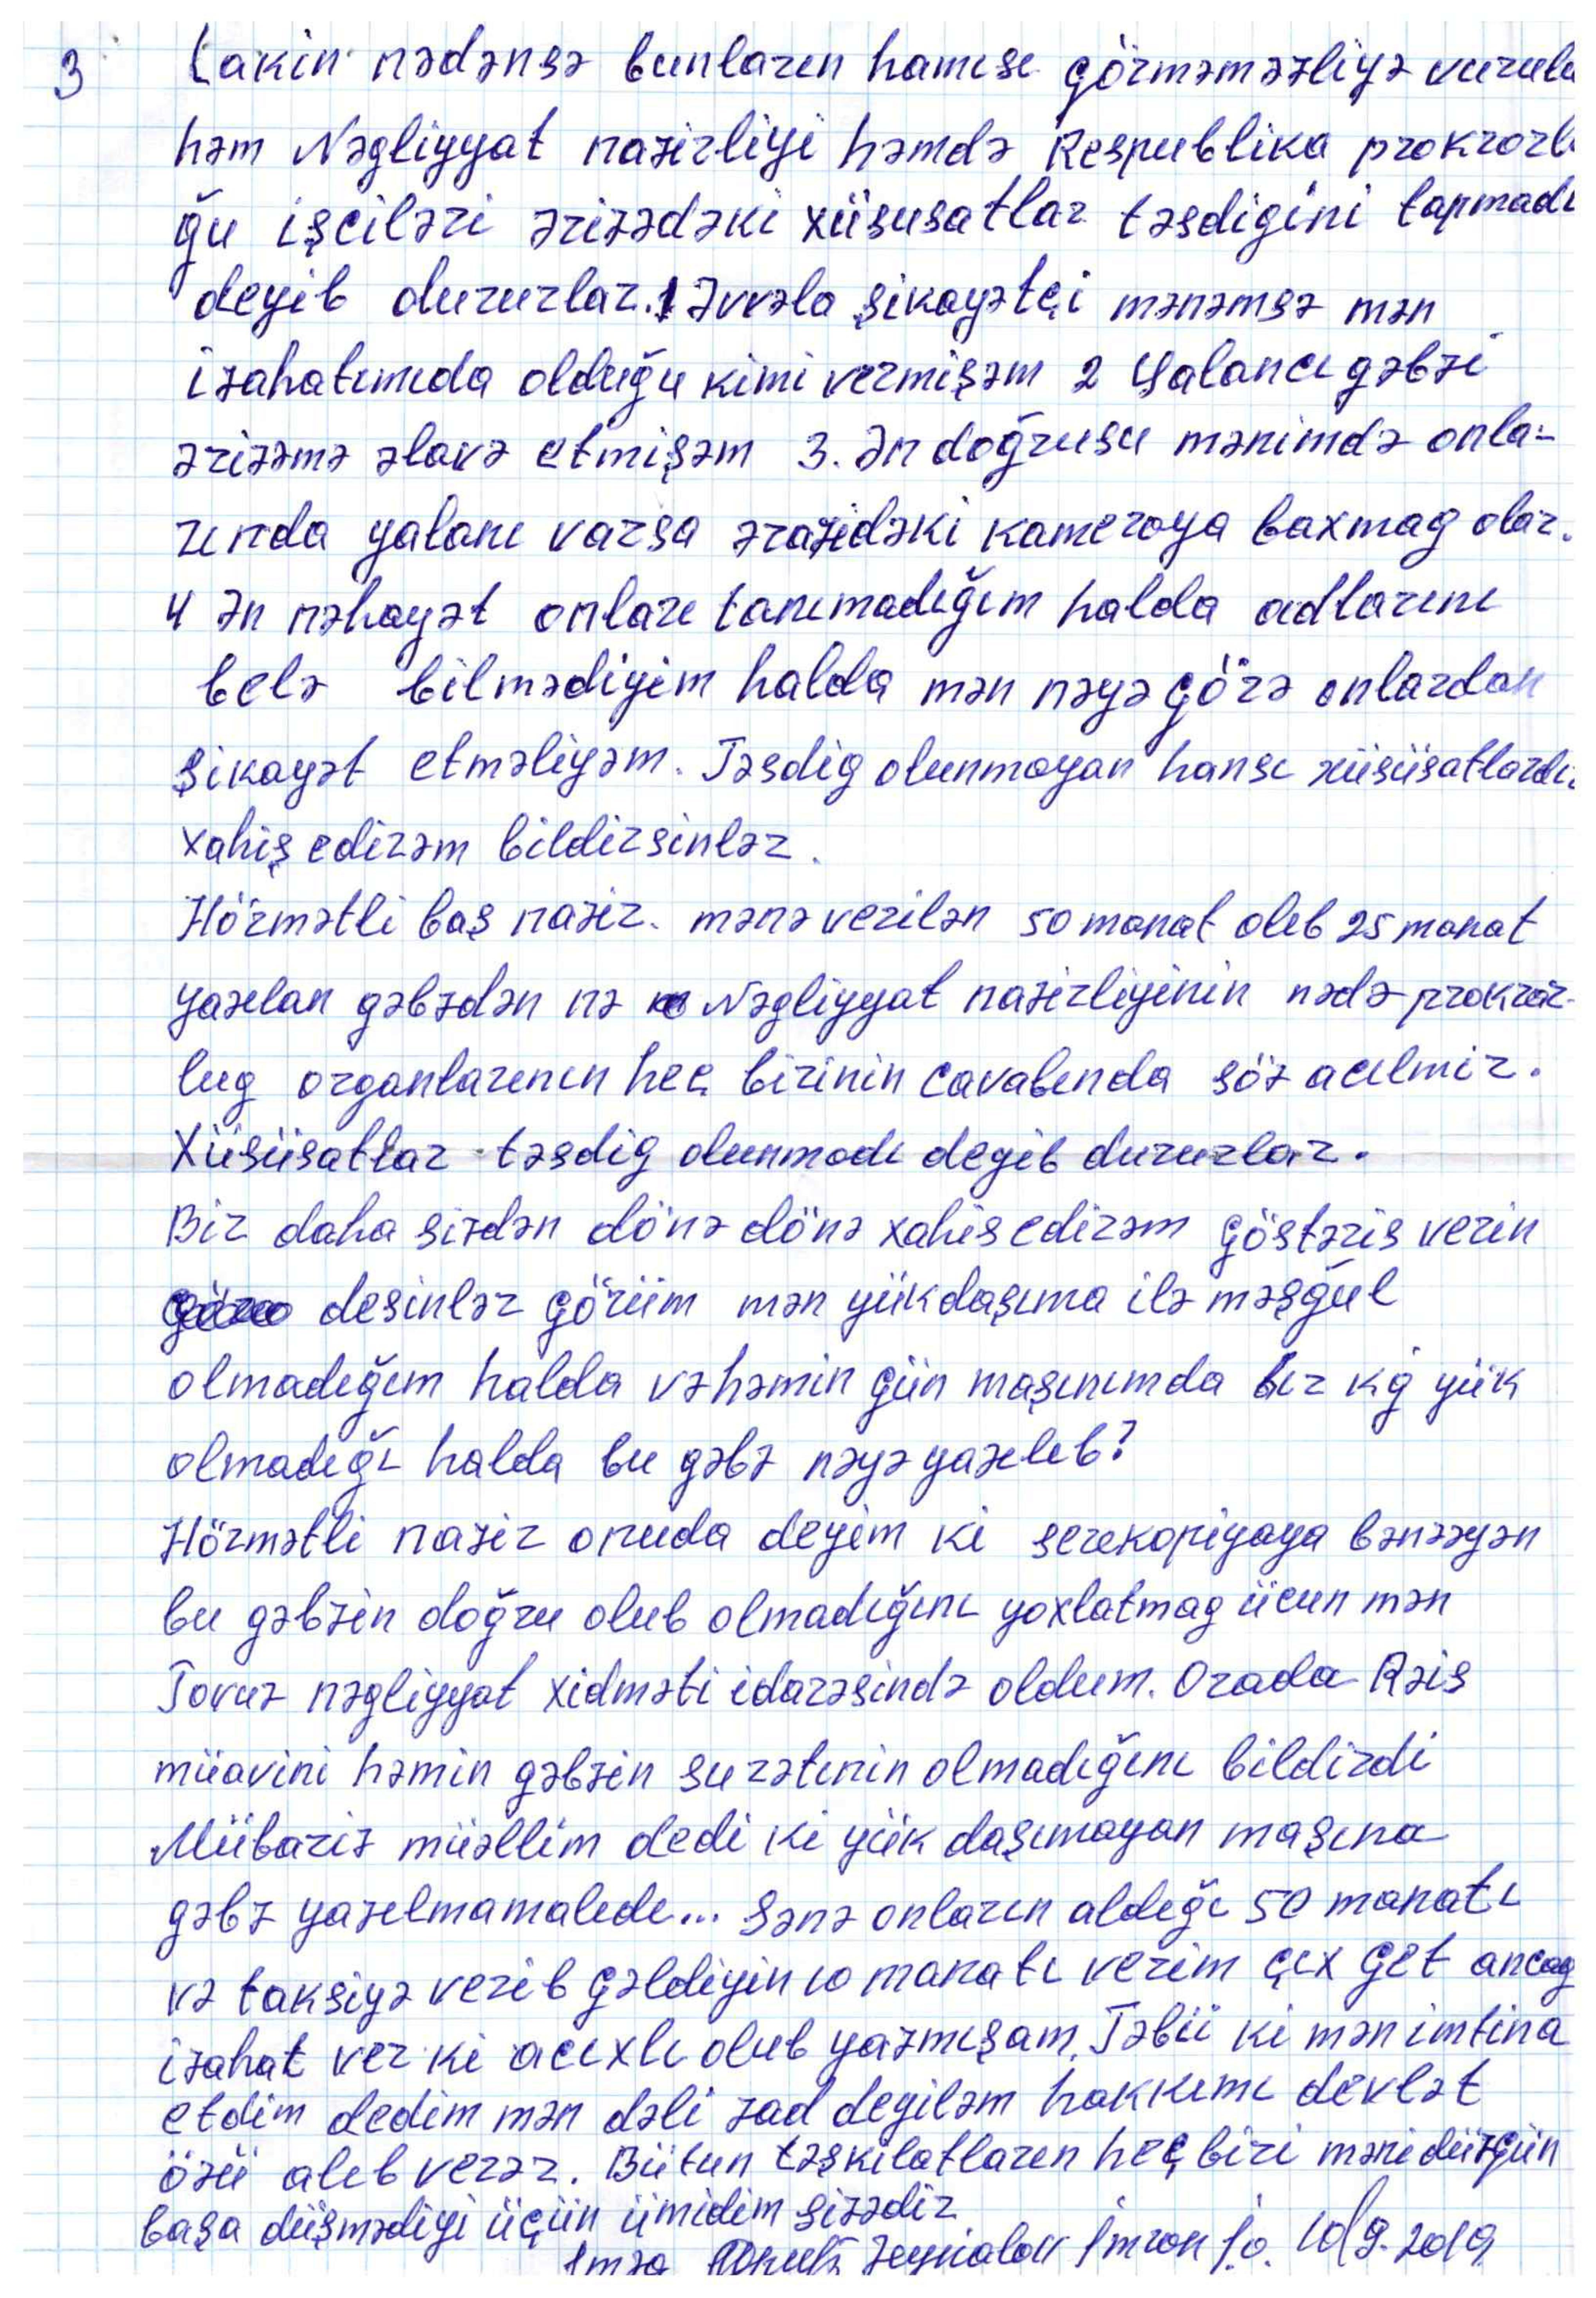 3 Lakin nədənsə bunların hamısı görməməzliyə vurulu
həm Nəgliyyat nazirliyi həmdə Respublika prokrorlu
ğu işciləri ərizədəki xüsusatlar təsdigini tapmadı
deyib dururlar. 1 Əvvəla şikayətçi mənəmsə mən
izahatımıda olduğu kimi vermişəm 2 Yalancı gəbzi
ərizəmə əlavə etmişəm 3. Ən doğrusu mənimdə onla-
rında yalanı varsa ərazidəki kameraya baxmag olar.
4 Ən nəhayət onları tanımadığım halda adlarını
belə bilmədiyim halda mən nəyə görə onlardan
şikayət etməliyəm. Təsdig olunmayan hansı xüsüsatlardı
xahiş edirəm bildirsinlər.
Hörmətli baş nazir. mənə verilən 50 manat olub 25 manat
yazılan gəbzdən nə Nəgliyyat nazirliyinin nədə prokror-
lug organlarının heç birinin cavabında söz acılmir.
Xüsüsatlar təsdig olunmadı deyib dururlar.
Bir daha sizdən dönə dönə xahis edirəm göstəris verin
desinlər görüm mən yükdaşıma ilə məşğul
olmadığım halda və həmin gün maşınımda bir kg yük
olmadığı halda bu gəbz nəyə yazılıb?
Hörmətli nazir onuda deyim ki serekopiyaya bənzəyən
bu gəbzin doğru olub olmadığını yoxlatmag ücun mən
Tovuz nəgliyyat xidməti idarəsində oldum. Orada Rəis
müavini həmin gəbzin surətinin olmadığını bildirdi
Mübariz müəllim dedi ki yük daşımayan maşına
gəbz yazılmamalıdı... Sənə onların aldığı 50 manatı
və taksiyə verib gəldiyin 10 manatı verim çıx get ancag
izahat ver ki acıxlı olub yazmışam. Təbii ki mən imtina
etdim dedim mən dəli zad deyiləm hakkımı devlət
özü alıb verər. Bütun təşkilatların heç biri məni düzgün
başa düşmədiyi üçün ümidim sizədir
İmza Zeynalov İmran İ.o. 10/9-2019